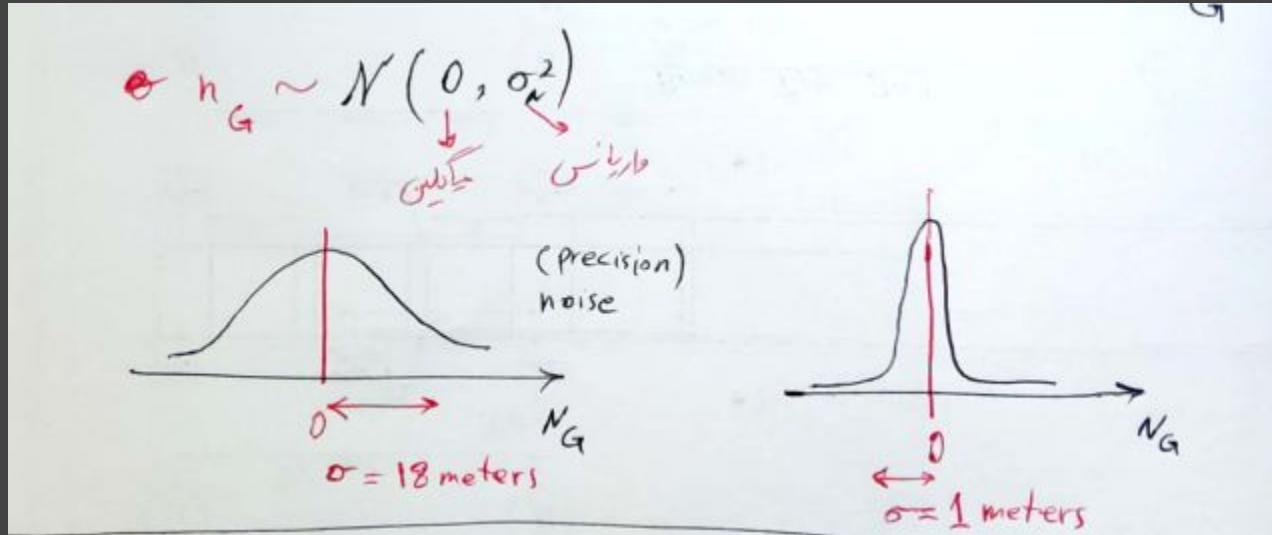 G
n_G ~ N(0, σ_N²)
میانگین
واریانس
(precision)
noise
0
N_G
σ = 18 meters
0
N_G
σ = 1 meters